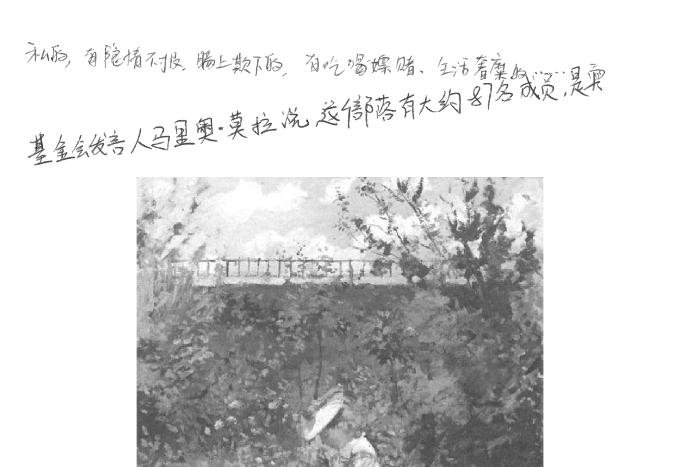 私的，有隐情不报、瞒上欺下的，有吃喝嫖赌、生活奢糜的……
基金会发言人马里奥·莫拉说，这个部落有大约87名成员，是两